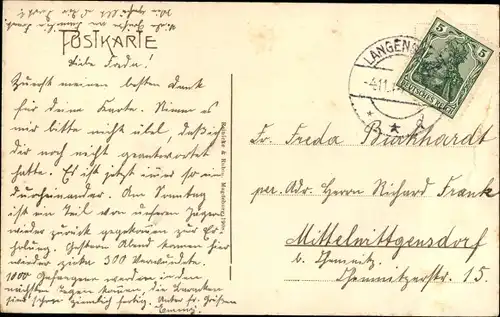 POSTKARTE
Liebe Freda!
Zuerst meinen besten Dank
für deine Karte. Nimm es
mir bitte nicht übel, daß ich
dir noch nicht geantwortet
hatte. Es ist jetzt immer so ein
Durcheinander. Am Sonntag
ist ein Teil von unseren Jägern
wieder zurück gekommen zur Er-
holung. Gestern Abend kamen hier
wieder zirka 300 Verwundete.
1000 Gefangene werden in den
nächsten Tagen kommen, die Baracken
sind schon ziemlich fertig.
Emmy.
Reinicke & Rubin, Magdeburg
LANGENS
-4.11.
5 5
DEUTSCHES REICH
Fr. Freda Burkhardt
per. Adr. Herrn Richard Frank
Mittelwittgensdorf
b. Chemnitz
Chemnitzerstr. 15.